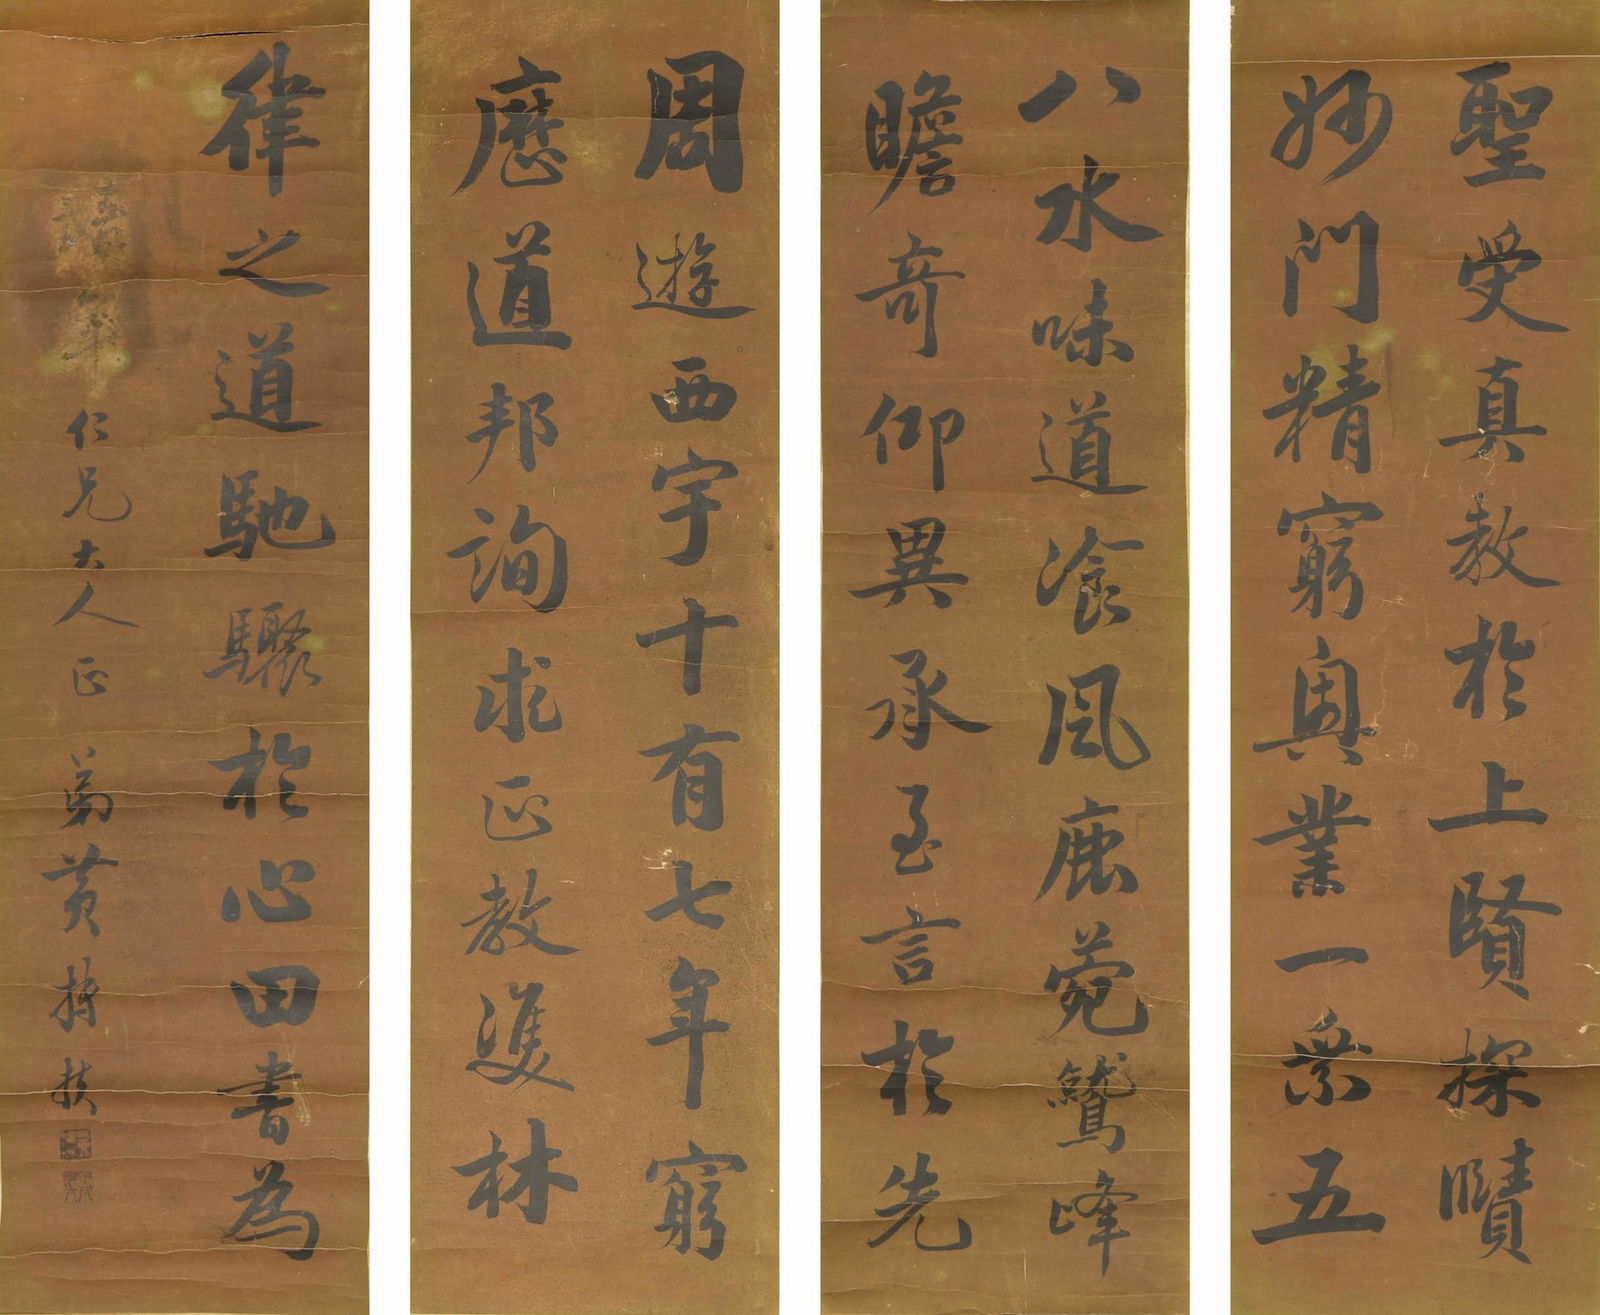 聖受真教於上賢探賾
妙門精窮奧業一乘五
八水味道飡風鹿菀鷲峰
瞻奇仰異承至言於先
周遊西宇十有七年窮
歷道邦詢求正教雙林
律之道馳驟於心田書為
仁兄大人正 弟黃扶